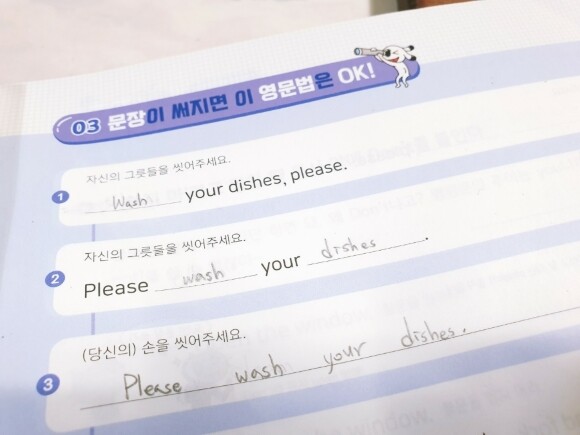 03 문장이 써지면 이 영문법은 OK!
자신의 그릇들을 씻어주세요.
1 Wash your dishes, please.
자신의 그릇들을 씻어주세요.
2 Please wash your dishes.
(당신의) 손을 씻어주세요.
3 Please wash your dishes.